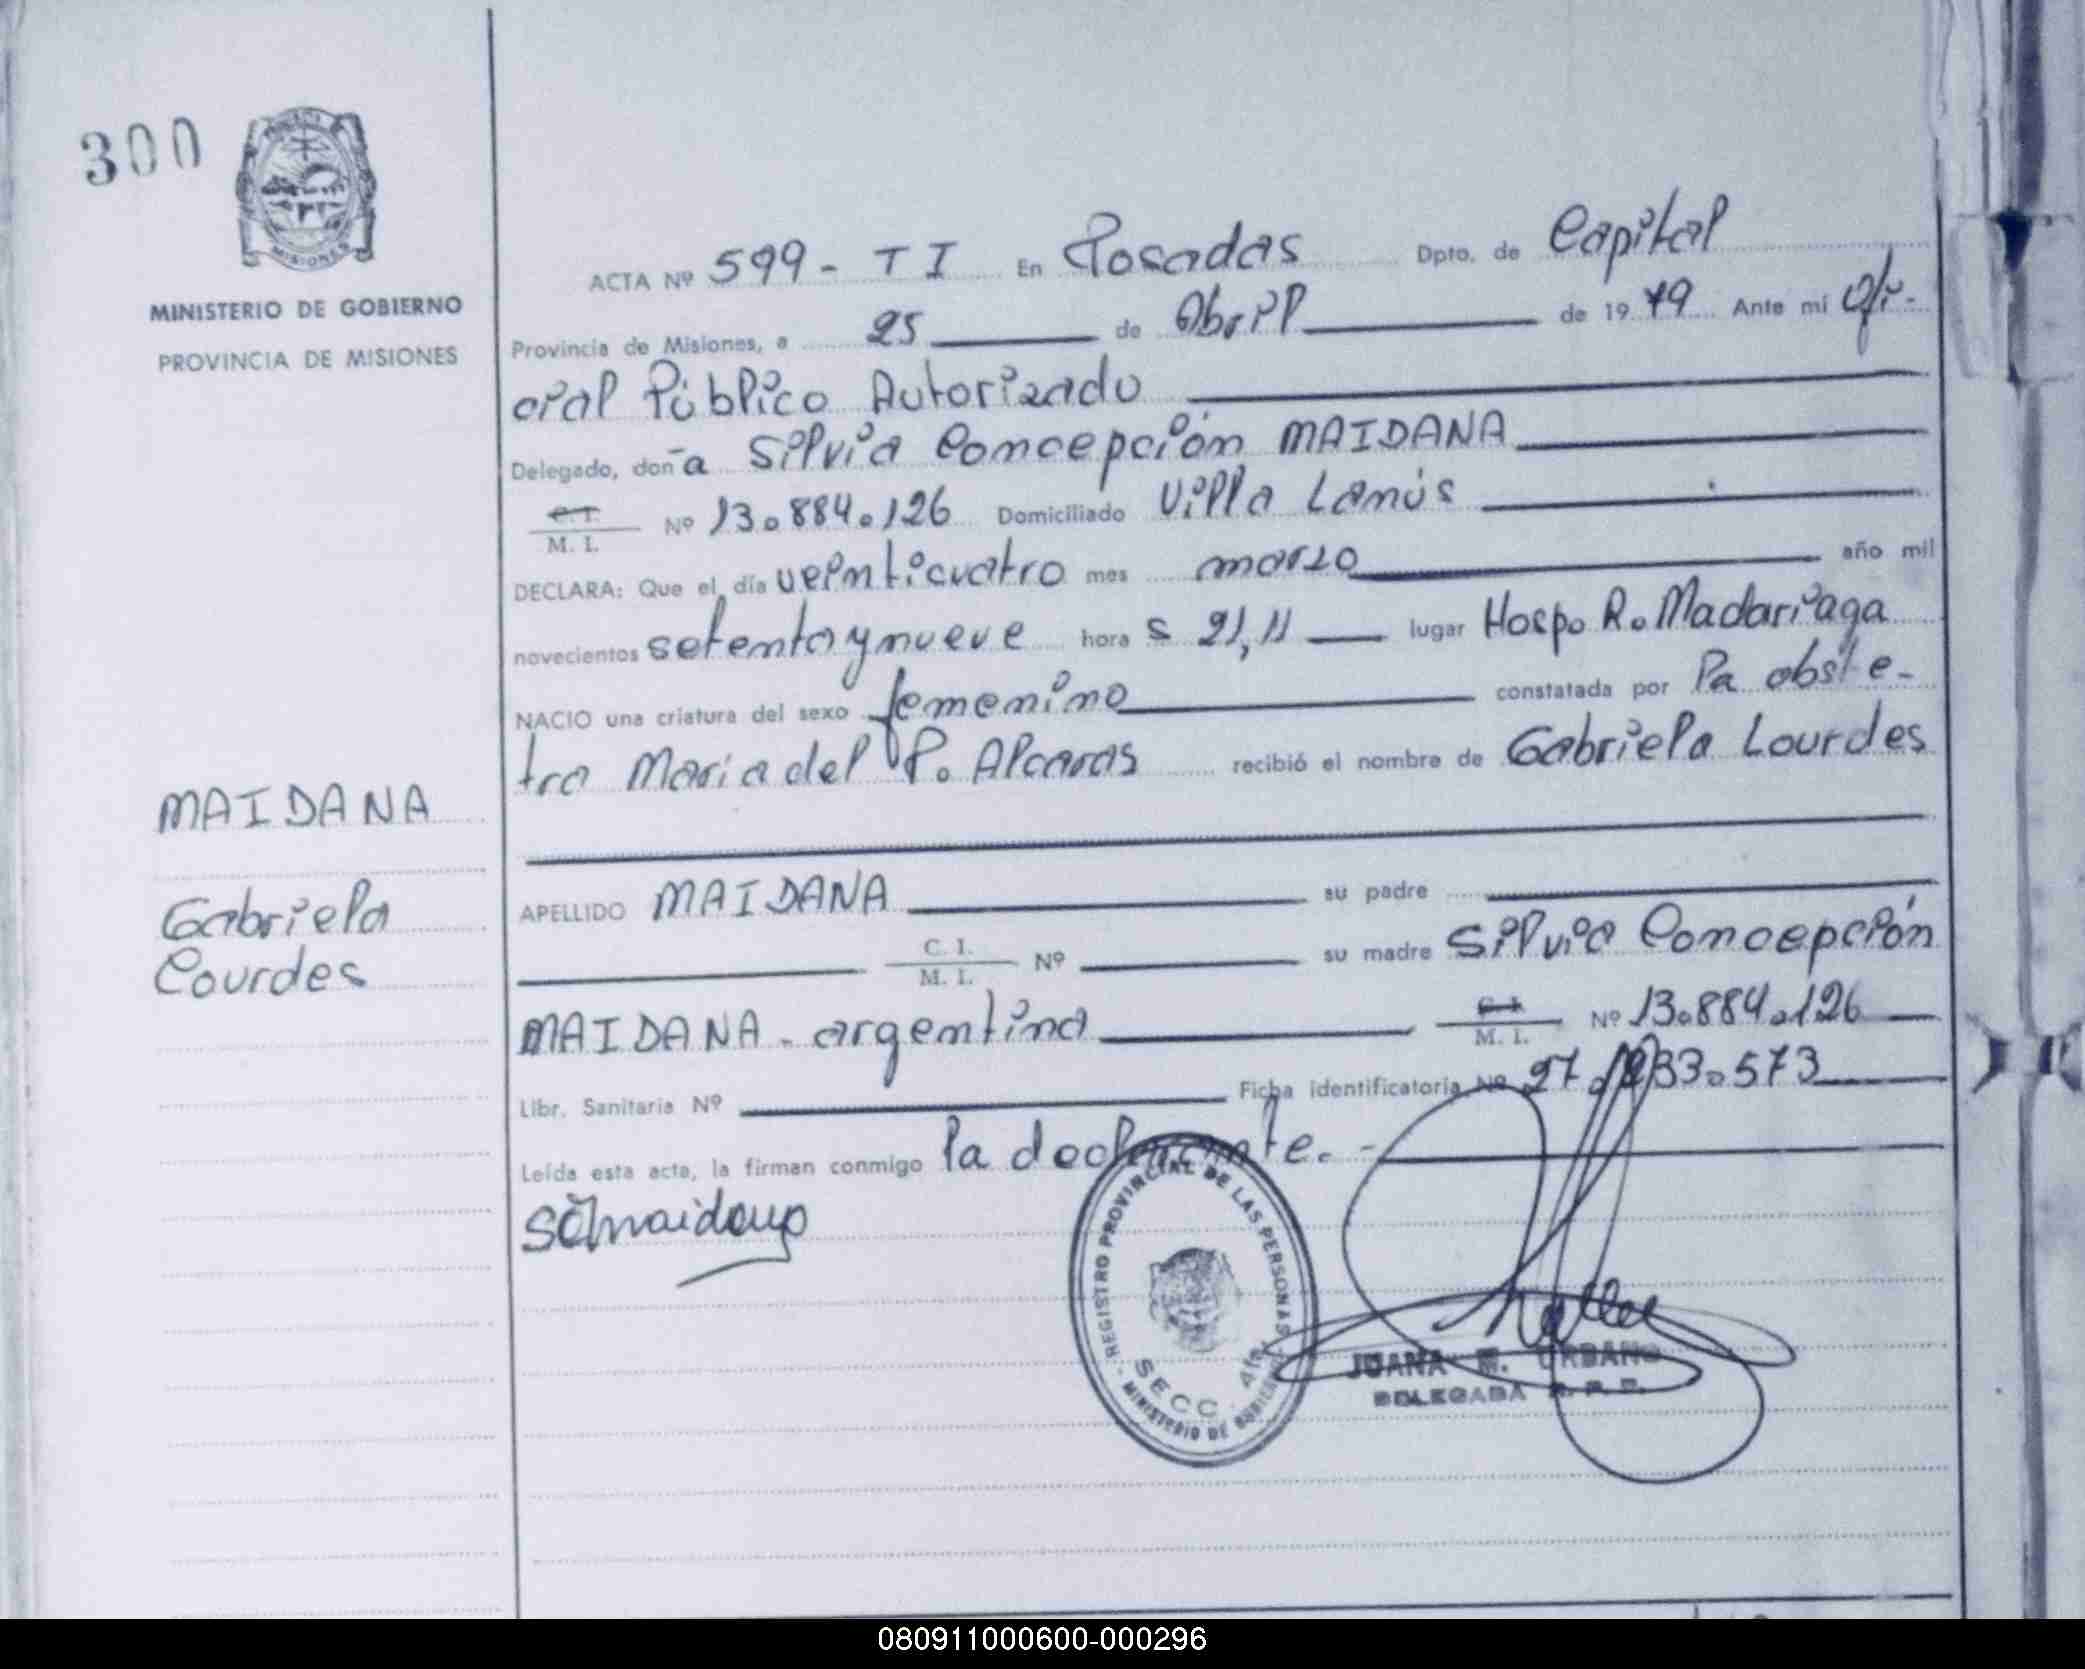 300
MINISTERIO DE GOBIERNO
PROVINCIA DE MISIONES
ACTA Nº 599 - T I En Posadas Dpto. de Capital
Provincia de Misiones, a 25 de Abril de 1979 Ante mi Ofi-
cial Público Autorizado
Delegado, doña Silvia Concepción MAIDANA
C. I.
M. I. Nº 13.884.126 Domiciliado Villa Lanús
DECLARA: Que el día veinticuatro mes marzo año mil
novecientos setenta y nueve hora s 21,11 lugar Hosp. R. Madariaga
NACIO una criatura del sexo femenino constatada por la obste-
tra Maria del P. Alcaras recibió el nombre de Gabriela Lourdes
MAIDANA
Gabriela
Lourdes
APELLIDO MAIDANA su padre
C. I.
M. I. Nº su madre Silvia Concepción
MAIDANA - argentina C. I.
M. I. Nº 13.884.126
Libr. Sanitaria Nº Ficha identificatoria Nº 27.233.573
Leída esta acta, la firman conmigo la declarante. -
SCMaidana
REGISTRO PROVINCIAL DE LAS PERSONAS
SECC.
MINISTERIO DE GOBIERNO
JUANA E. URBANO
DELEGADA R. P. P.
MISIONES
080911000600-000296